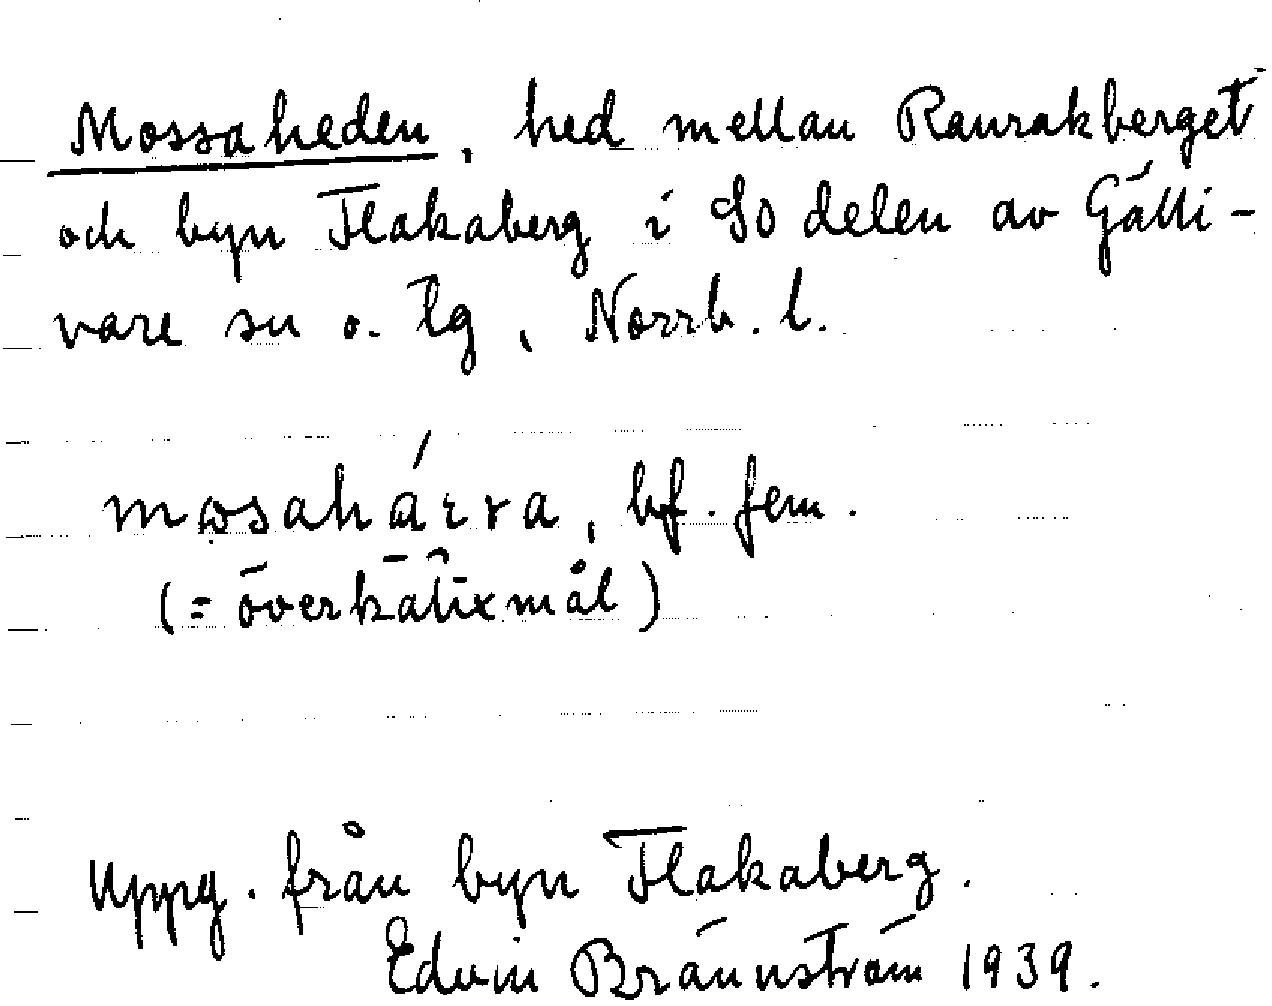 Mossaheden, hed mellan Raurakberget
och byn Flakaberg i So delen av Gälli-
vare sn o. tg, Norrb. l.
mosahárra, bf. fem.
(= överkalixmål)
Uppg. från byn Flakaberg.
Edvin Brännström 1939.